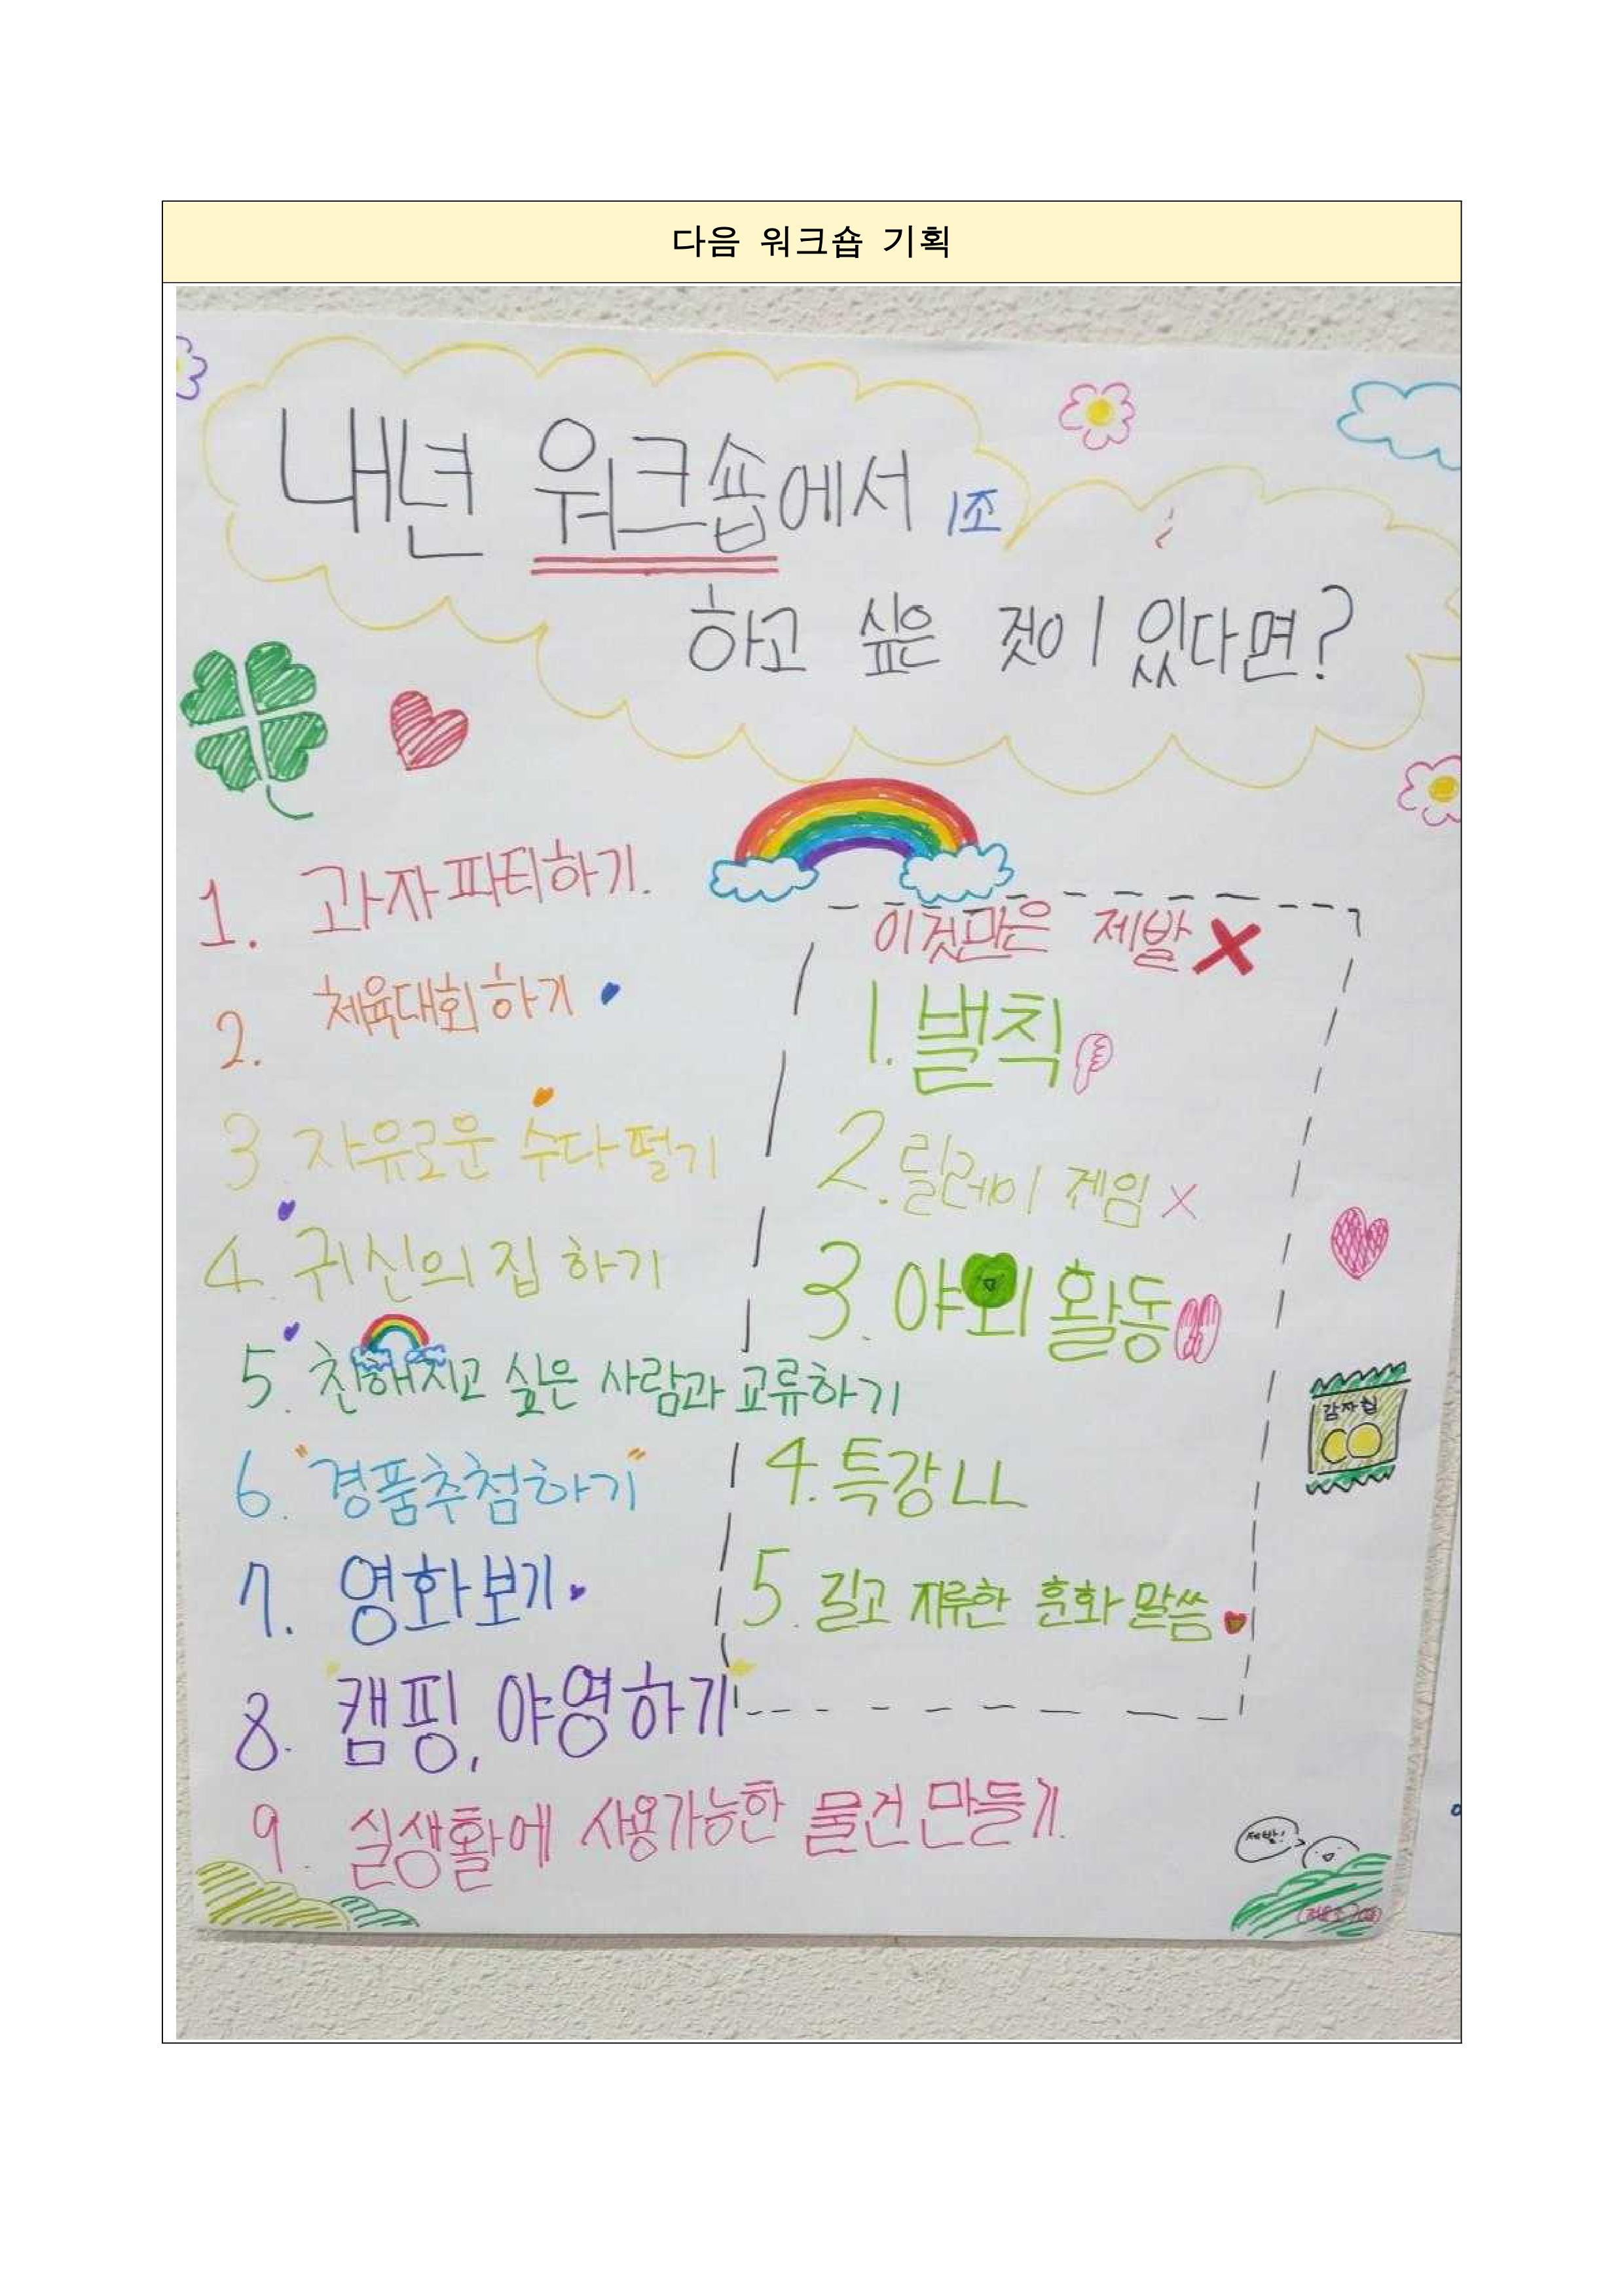 다음 워크숍 기획
내년 워크숍에서 1조
하고 싶은 것이 있다면?
1. 과자파티하기.
2. 체육대회하기
3. 자유로운 수다떨기
4. 귀신의 집 하기
5. 친해지고 싶은 사람과 교류하기
6. "경품추첨하기"
7. 영화보기
8. 캠핑, 야영하기
9. 실생활에 사용가능한 물건 만들기.
이것만은 제발 X
1. 벌칙
2. 릴레이 게임 X
3. 야외 활동
4. 특강ㄴㄴ
5. 길고 지루한 훈화 말씀
감자칩
제발!